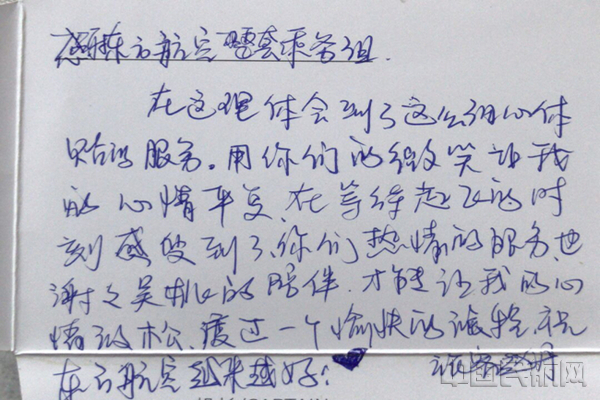 感谢东方航空 乘务组.
在这里体会到了这么细心体
贴的服务。用你们的微笑让我
的心情平复、在等待起飞的时
刻感受到了、你们热情的服务、也
谢谢吴 的陪伴.才能让我的心
情放松、度过一个愉快的旅程.祝
东方航空越来越好!
旅客
中国民航网